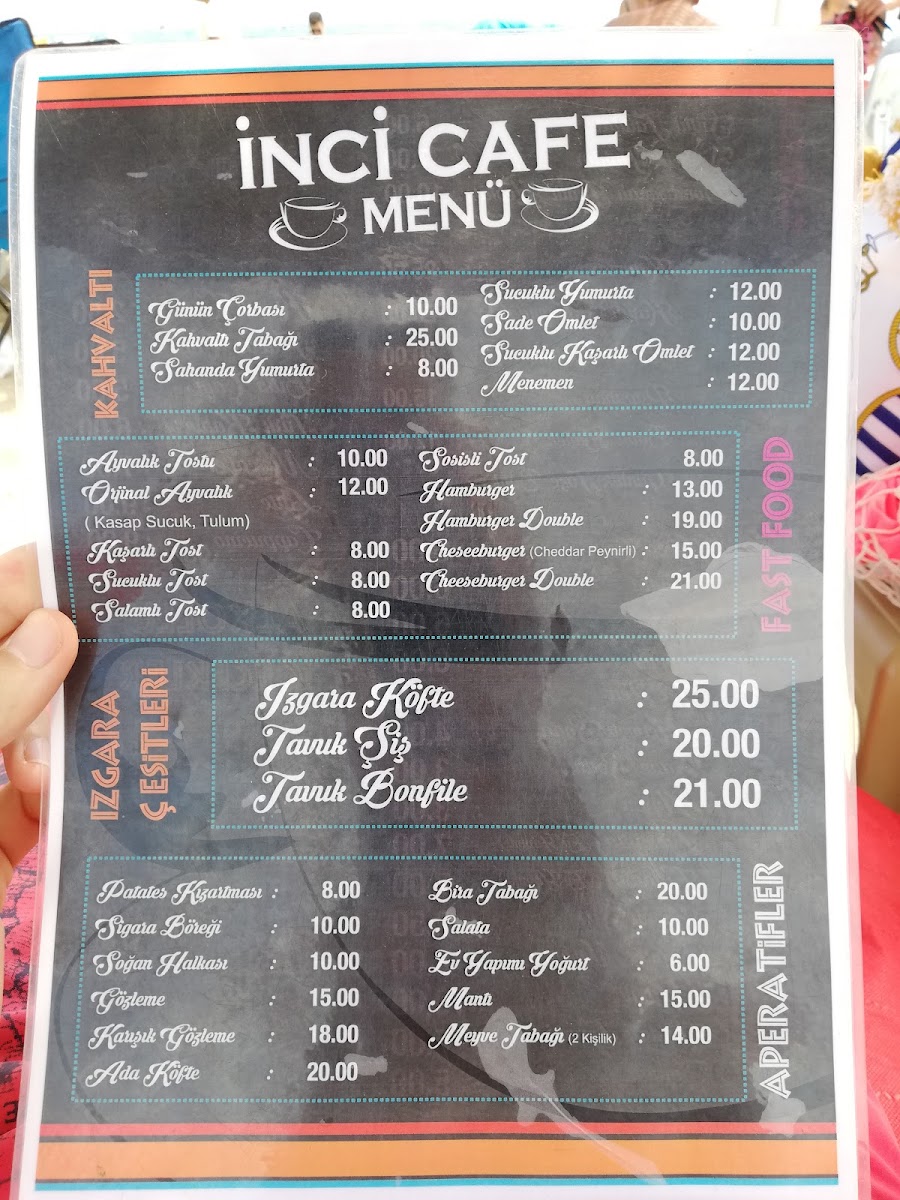 İNCİ CAFE
MENÜ
KAHVALTI
Günün Çorbası : 10.00
Kahvaltı Tabağı : 25.00
Sahanda Yumurta : 8.00
Sucuklu Yumurta : 12.00
Sade Omlet : 10.00
Sucuklu Kaşarlı Omlet : 12.00
Menemen : 12.00
FAST FOOD
Ayvalık Tostu : 10.00
Orjinal Ayvalık : 12.00
( Kasap Sucuk, Tulum)
Kaşarlı Tost : 8.00
Sucuklu Tost : 8.00
Salamlı Tost : 8.00
Sosisli Tost 8.00
Hamburger : 13.00
Hamburger Double : 19.00
Cheseeburger (Cheddar Peynirli) : 15.00
Cheeseburger Double : 21.00
IZGARA
ÇEŞİTLERİ
Izgara Köfte : 25.00
Tavuk Şiş : 20.00
Tavuk Bonfile : 21.00
APERATİFLER
Patates Kızartması : 8.00
Sigara Böreği : 10.00
Soğan Halkası : 10.00
Gözleme : 15.00
Karışık Gözleme : 18.00
Ada Köfte : 20.00
Bira Tabağı : 20.00
Salata : 10.00
Ev Yapımı Yoğurt : 6.00
Mantı : 15.00
Meyve Tabağı (2 Kişilik) : 14.00